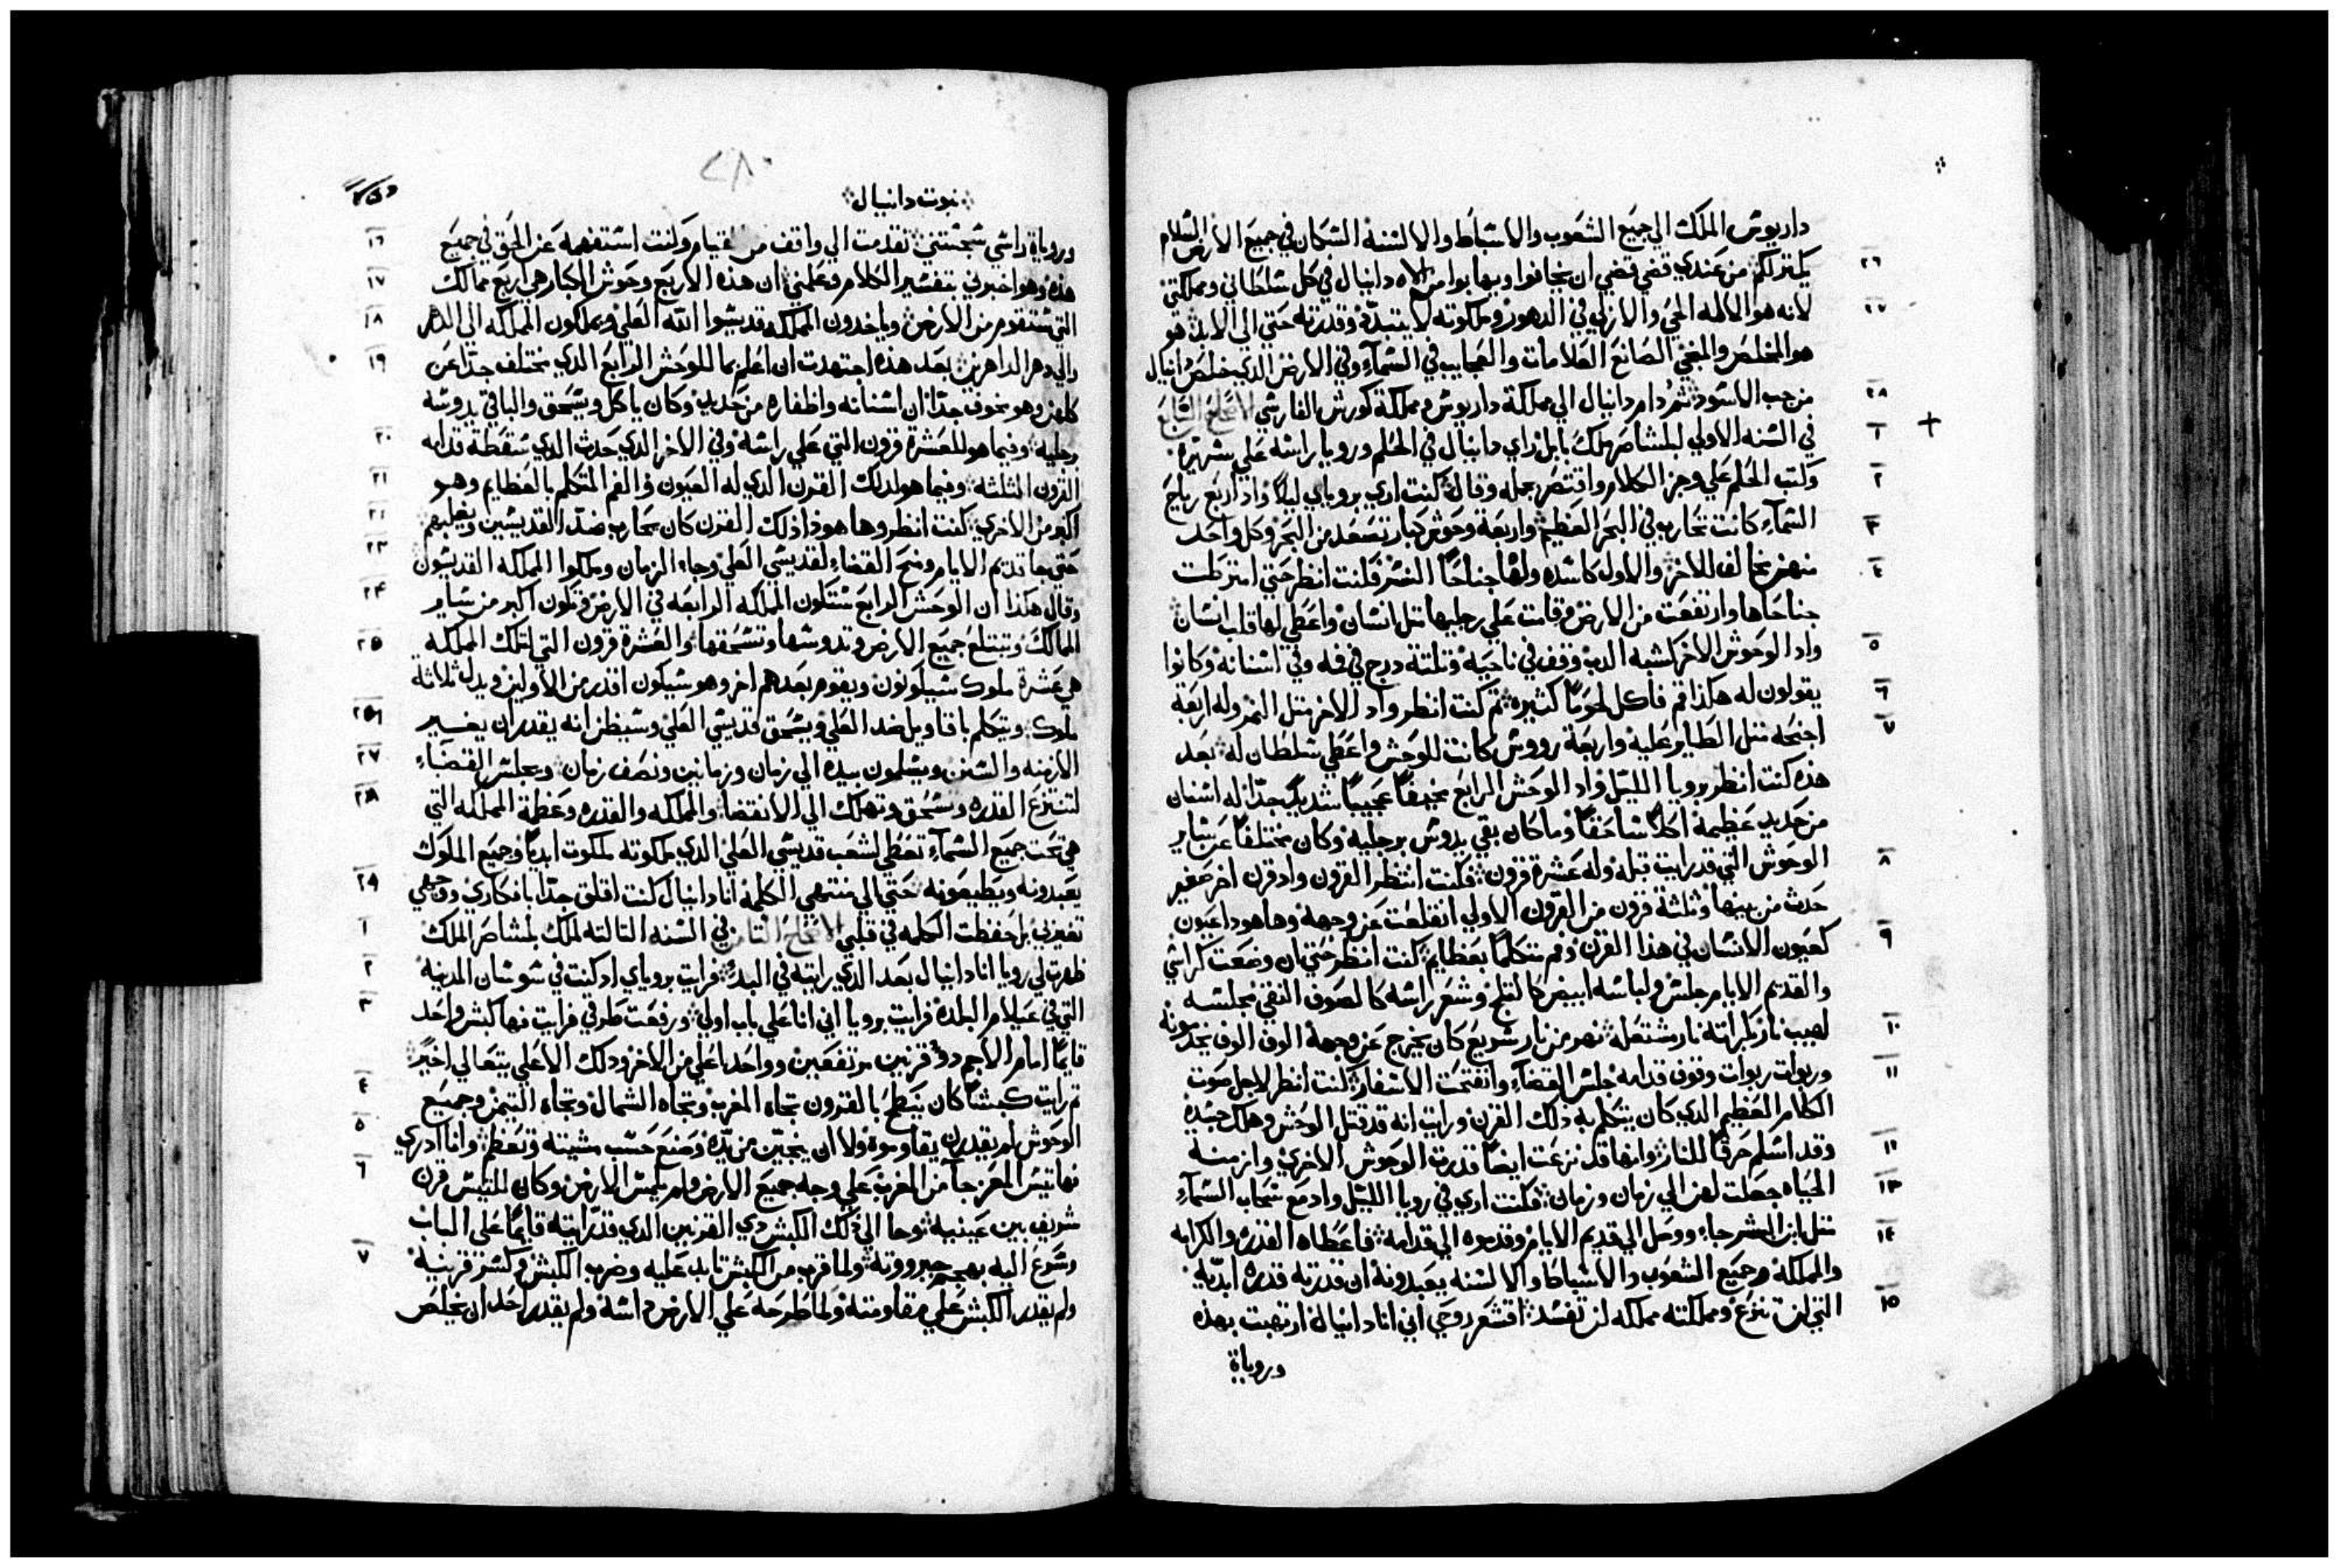 داريوش الملك الي جميع الشعوب والاسباط والالسنة السكان في جميع الارض السلام
٢٦ يكتر لكم من عندي قضي قضي ان يخافوا ويهابوا من الاه دانيال في كل سلطاني ومملكتي
٢٧ لانه هو الاله الحي والازلي في الدهور وملكوته لا يتبدد وقدرته حتي الي الابد هو
هو المخلص والمنجي الصانع العلامات والعجايب في السمآء وفي الارض الدي خلص دانيال
٢٨ من جب الاسود ثم دام دانيال الي مملكة داريوش ومملكة كورش الفارسي الاصحاح السابع
١ في السنه الاولي لبلشاصر ملك بابل راي دانيال في الحلم ورويا راسه علي سريره
٢ وكتب الحلم علي وجز الكلام واقتصر بجمله وقال كنت اري بروياي ليلاً واد اربع رياح
٣ السمآء كانت تحارب في البحر العظيم واربعة وحوش كبار تصعد من البحر وكل واحد
٤ منهن يخالف للاخر والاول كاسده ولها جناحا النسر فكنت انظر حتي امترطت
جناحاها وارتفعت من الارض وقامت علي رجليها متل انسان واعطي لها قلب انسان
٥ واد الوحوش الاخر كشبه الدب وقف في ناحيه وتلتة درج في فمه وفي اسنانه وكانوا
٦ يقولون له هكذا قم فاكل لحوما كثيره ثم كنت انظر واد الاخر متل النمر وله اربعة
٧ اجنحه متل الطاير عليه واربعة رووس كانت للوحش واعطي سلطان له بعد
هذه كنت انظر برويا الليل واد الوحش الرابع مخيفاً عجيباً شديداً جدّا له اسنان
من حديد عظيمة اكلاً ساحقاً وما كان بقي يدوس برجليه وكان مختلفاً عن ساير
٨ الوحوش التي قد رايت قبله وله عشرة قرون فكنت انتظر القرون واد قرن اخر صغير
حدث من بينها وتلثة قرون من القرون الاولي انقلعت عن وجهه وها هودا عيون
٩ كعيون الانسان في هذا القرن وفم متكلماً بعظايم كنت انظر حتي ان وضعت كراسي
والقديم الايام جلس ولباسه ابيض كالثلج وشعر راسه كالصوف النقي مجلسه
١٠ لهيب نار بكراته نار مشتعله نهر من نار سريع كان يخرج عن وجهه الوف الوف يخدمونه
١١ وربوات ربوات وقوف قدامه جلس القضآء وانفتحت الاسفار كنت انظر لاجل صوت
الكلام العظيم الدي كان يتكلم به ذلك القرن ورايت انه قد قتل الوحش وهلك جسده
١٢ وقد اسلم حرقاً للنار وانها قد نزعت ايضاً قدرت الوحوش الاخري وازمنة
١٣ الحياه جعلت لهن الي زمان وزمان فكنت اري في رويا الليل واد مع سحاب السمآء
١٤ متل ابن البشر جاء ووصل الي قديم الايام وقدموه الي قدامه فاعطاه القدره والكرامه
والمملكة وجميع الشعوب والاسباط والالسنه يعبدونه ان قدرته قدره ابديّه
١٥ التي لن تنزع ومملكته مملكه لن تفسد اقشعر روحي اني انا دانيال ارتهبت بهذه
وروياة
نبوت دانيال
١٦ وروياة راسي سجستني تقدمت الي واقف من القيام وكنت استفهمه عن الحق في جميع
١٧ هذه وهو اخبرني بتفسير الكلام وعلمني ان هذه الاربع وحوش الكبار هي اربع ممالك
١٨ التي ستقوم من الارض وياخدون المملكه قديسوا اللّه العلي ويملكون المملكه الي الدهر
١٩ والي دهر الداهرين بعد هذه اجتهدت ان اعلم بما للوحش الرابع الدي مختلف جدّا عن
كلهن وهو مخوف جدّا ان اسنانه واظفاره من حديد وكان ياكل ويسحق والباقي يدوسه
٢٠ برجليه وفيما هو للعشرة قرون التي علي راسه وفي الاخر الدي حدث الدي سقطة قدامه
٢١ القرون الثلثه وفيما هو لدلك القرن الدي له العيون والفم المتكلم بالعظايم وهو
٢٢ اكبر من الاخري كنت انظر وها هوذا ذلك القرن كان يحارب ضدّ القديسين ويغلبهم
٢٣ حتي جا قديم الايام ومنح القضاء لقديسي العلي وجاء الزمان وملكوا المملكه القديسون
٢٤ وقال هكذا ان الوحش الرابع ستكون المملكه الرابعه في الارض وتكون اكبر من ساير
٢٥ الممالك وتبتلع جميع الارض وتدوسها وتسحقها والعشرة قرون التي لتلك المملكه
هي عشرة ملوك سيكونون ويقوم بعدهم اخر وهو سيكون اقدر من الاولين ويدل ثلاثة
٢٦ ملوك ويتكلم باقاويل ضد العلي ويسحق قديسي العلي وسيظن انه يقدر ان يغير
٢٧ الازمنه والسنن ويسلمون بيده الي زمان وزمانين ونصف زمان ويجلس القضآء
٢٨ لتنتزع القدره وتسحق وتهلك الي الانقضا والمملكه والقدره وعظمة المملكه التي
هي تحت جميع السمآء تعطي لشعب قديسي العلي الدي ملكوته ملكوت ابدياً وجميع الملوك
٢٩ يعبدونه ويطيعونه حتي الي منتهي الكلمة انا دانيال كنت اقلق جدّا بافكاري ووجهي
١ تغير بل حفظت الكلمه في قلبي الاصحاح الثامن في السنه الثالثه لملك بلشاصر الملك
٢ ظهرت لي رويا انا دانيال بعد الدي رايته في البدء فرايت بروياي اد كنت في شوشان المدينه
٣ التي في عيلام البلده فرايت برويا اني انا علي باب اولي ورفعت طرفي فرايت فها كبش واحد
قايماً امام الاجم دو قرنين مرتفعين وواحد اعلي من الاخر ودلك الاعلي يتعالي اخيرً
٤ ثم رايت كبشاً كان ينطح بالقرون تجاه المغرب وتجاه الشمال وتجاه التيمن وجميع
٥ الوحوش لم يقدرن يقاوموه ولا ان ينجيّن من يدّه وصنع حسب مشيته وتعظم وانا ادري
٦ فها تيس المعز جآ من المغرب علي وجه جميع الارض ولم يلمس الارض وكان للتيس قرن
شريف بين عينيه فجا الي ذلك الكبش دي القرنين الدي قد رايته قايماً علي الباب
٧ وسرع اليه بهجم جبرووته ولما قرب من الكبش تايد عليه وضرب الكبش وكسر قرنيه
ولم يقدر الكبش علي مقاومته ولما طرحه علي الارض داسه ولم يقدر احد ان يخلص